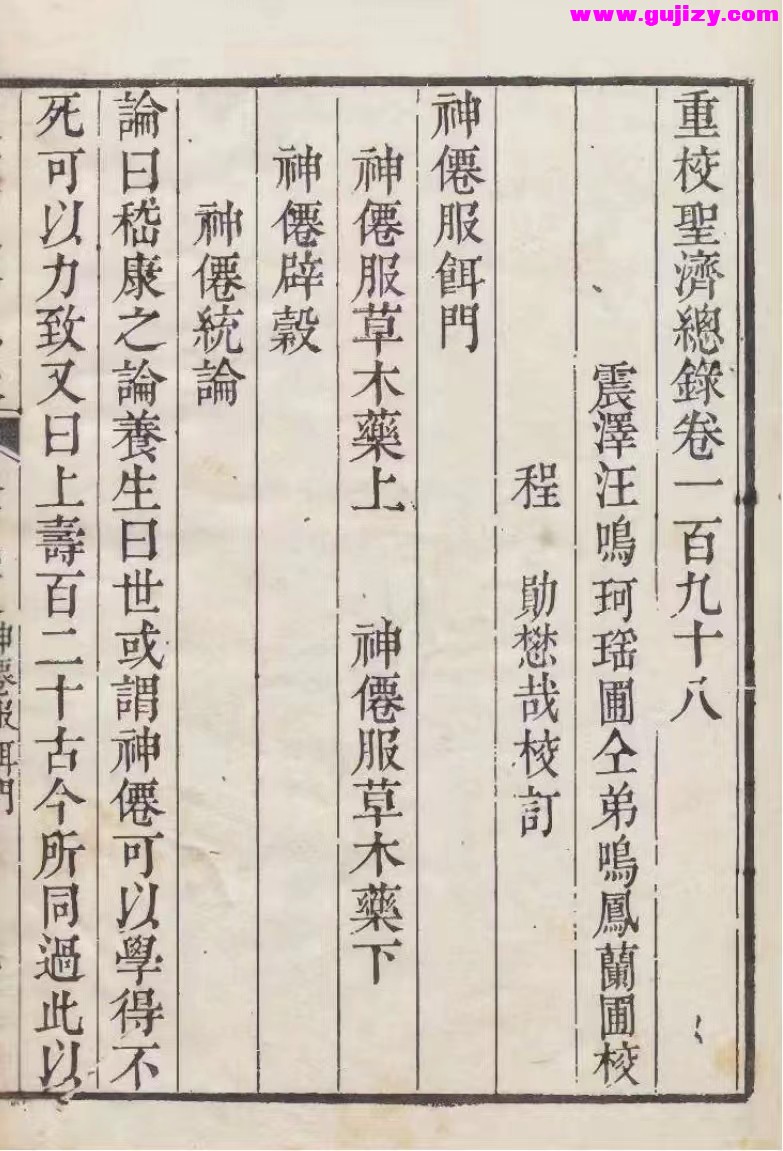 www.gujizy.com
重校聖濟總錄卷一百九十八
震澤汪鳴珂瑶圃仝弟鳴鳳蘭圃校
程 勛懋哉校訂
神僊服餌門
神僊服草木藥上 神僊服草木藥下
神僊辟穀
神僊統論
論曰嵇康之論養生曰世或謂神僊可以學得不
死可以力致又曰上壽百二十古今所同過此以
神僊服餌門